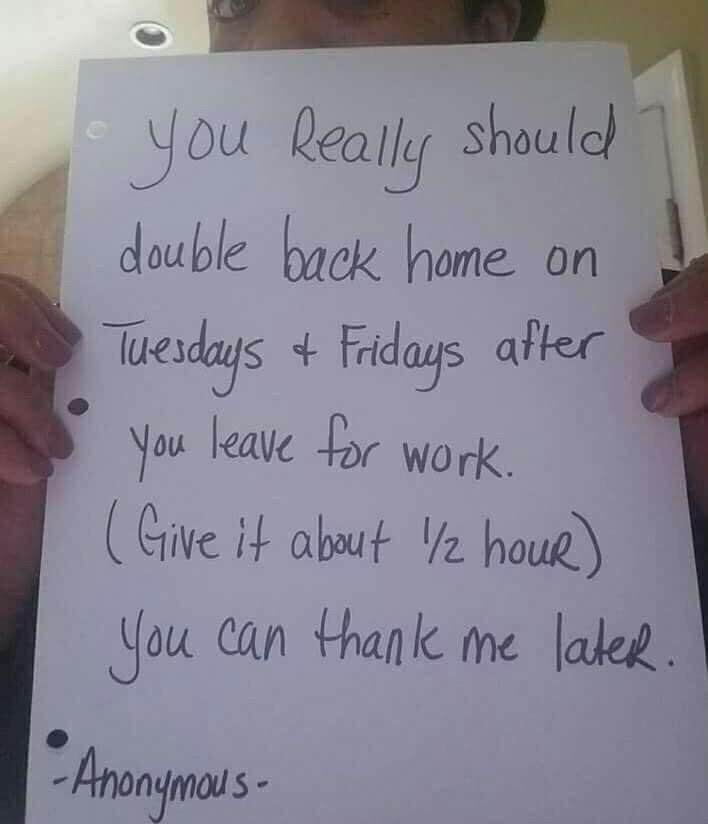 you Really should
double back home on
Tuesdays & Fridays after
you leave for work.
(Give it about 1/2 houR)
you can thank me lateR.
-Anonymous-